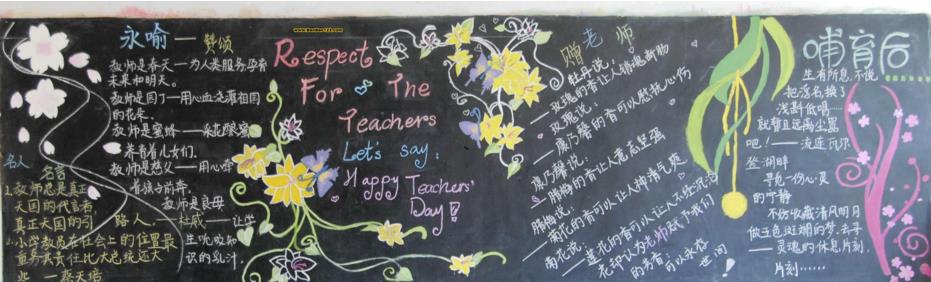 永喻——赞颂
教师是春天——为人类服务孕育
未来和明天。
教师是园丁——用心血浇灌祖国
的花朵。
教师是蜜蜂——采花酿蜜
养育着儿女们。
教师是慈父——用心
教师是良母
——让学
生吮吸知
识的乳汁。
名人
名言
1.教师总是真正
天国的代言者,
真正天国的引
路人。——杜威
2.小学教员在社会上的位置最
重要其责任比大总统还大
些 ——蔡元培
Respect
For The
Teachers
Let's say:
Happy Teachers'
Day!
赠老师
牡丹说:
——玫瑰的香让人
玫瑰说:
——康乃馨的香可以慰抚心伤
康乃馨说:
——腊梅的香让人意志坚强
腊梅说:
——菊花的香可以让人神清气爽
菊花说:
——莲花的香可以让人不
老师
的芳香,可以永存
世间!
哺育后
生有所息,不说
把浮名换了
浅斟低唱
就暂且远离尘嚣
吧!——流连瓦尔
登湖畔
寻觅一份心灵
的宁静
不妨收藏清风明月
做五色斑斓的梦,去寻
——灵魂的休息片刻,
片刻……